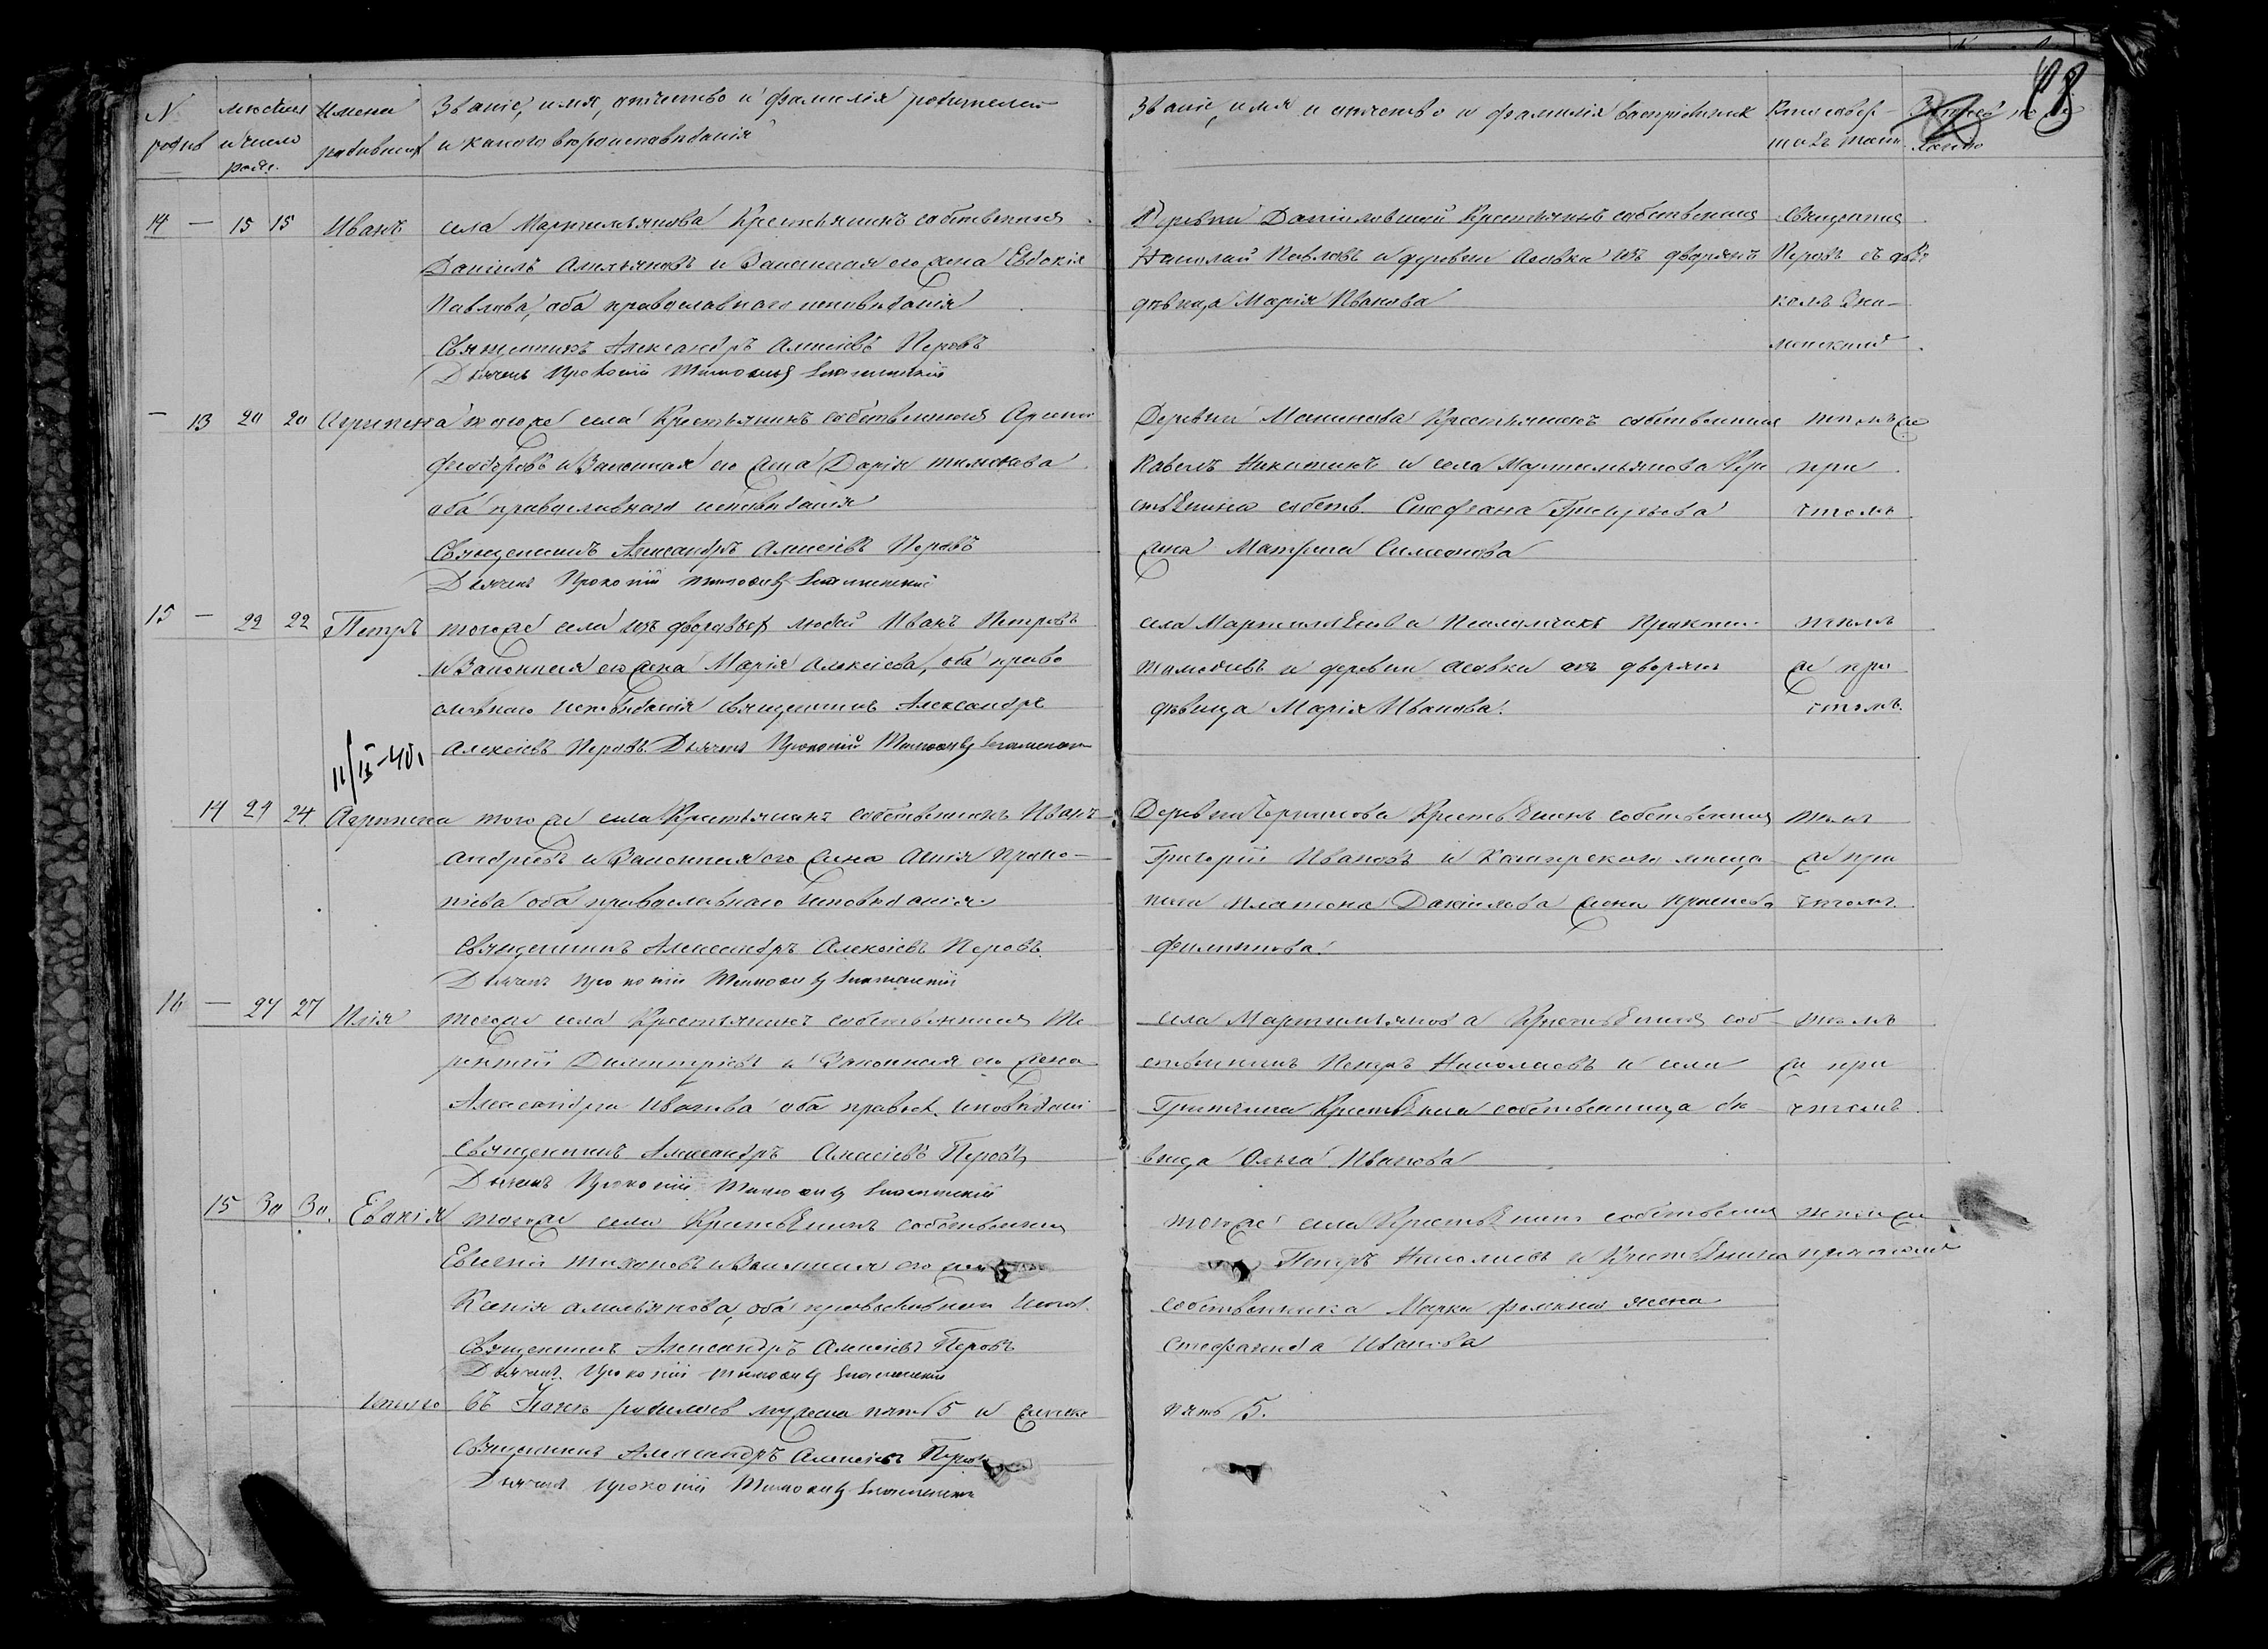 № родив
мѣсяцъ и число рожд.
Имена родивших
Званіе, имя, отчество и фамилія родителей
и какого вѣроисповѣданія
Званіе, имя и отчество и фамилія воспріемник
Кто совер-
шалъ таин.
14 — 15 15 Иванъ
села Мартемьянова Крестьянинъ собственник
Даніилъ Амельяновъ и Законная его жена Евдокія
Павлова, оба православнаго исповѣданія
Священникъ Александръ Алексіевъ Перовъ
Дьячекъ Прокопій Тимофеевъ Знаменскій
Деревни Даниловской Крестьянинъ собственник
Николай Павловъ и деревни Асовки изъ дворянъ
дѣвица Марія Иванова
Священник
Перовъ съ дья
комъ Зна-
менский
— 13 20 20 Агрипена
тогоже села Крестьянинъ собственник Арсений
Феодоровъ и Законная его жена Дарія Тимофеева
оба православнаго исповѣданія
Священникъ Александръ Алексіевъ Перовъ
Дьячекъ Прокопій Тимофеевъ Знаменскій
Деревни Крестьянинъ собственник
Павелъ Никитинъ и села Мартемьянова Кре
стьянина собств. Стефана Григорьева
жена Матрена Симеонова
тотъ же
при
чтомъ
15 — 22 22 Петръ
тогоже села изъ дворовых людей Иванъ Петровъ
и Законная его жена Марія Алексіева, оба право
славнаго исповѣданія Священникъ Александръ
Алексіевъ Перовъ. Дьячекъ Прокопій Тимофеевъ Знаменский
села Мартемьянова Псаломщикъ Прокопий
Тимофеевъ и деревни Асовки изъ дворянъ
дѣвица Марія Иванова.
тѣмъ
же при
чтомъ.
11/IX-40г.
14 24 24 Агрипена
того же села Крестьянинъ собственникъ Иванъ
Андреевъ и Законная его жена Анна Проко-
піева оба православнаго исповѣданія
Священникъ Александръ Алексіевъ Перовъ
Дьячекъ Прокопій Тимофеевъ Знаменскій
Деревни Крестьянинъ собственник
Григорій Ивановъ и Каширскаго меща
нина Платона Даніилова жена
Филиппова.
тѣмъ
же при
чтомъ.
16 — 27 27 Илія
тогоже села Крестьянинъ собственник Те
рентій Димитріевъ и Законная его жена
Александра Иванова оба правосл. исповѣдані
Священникъ Александръ Алексіевъ Перовъ
Дьячекъ Прокопій Тимофеевъ Знаменскій
села Мартемьянова Крестьянин соб-
ственникъ Петръ Николаевъ и села
Крестьянка собственница дѣ
вица Ольга Иванова
тѣмъ
же при
чтомъ
15 30 30. Евдокія
тогоже села Крестьянинъ собственник
Евгеній Тихоновъ и Законная его жена
Ксенія Амельянова, оба православнаго испов.
Священникъ Александръ Алексіевъ Перовъ
Дьячекъ Прокопій Тимофеевъ Знаменскій
тогоже села Крестьянинъ собственник
Петръ Николаевъ и Крестьянина
собственника Марка Фомина жена
Стефанида Иванова
тѣмъ же
причтомъ
Итого въ Іюнѣ родилось мужеска пять 5 и женска
пять 5.
Священникъ Александръ Алексіевъ Перовъ
Дьячекъ Прокопій Тимофеевъ Знаменскій